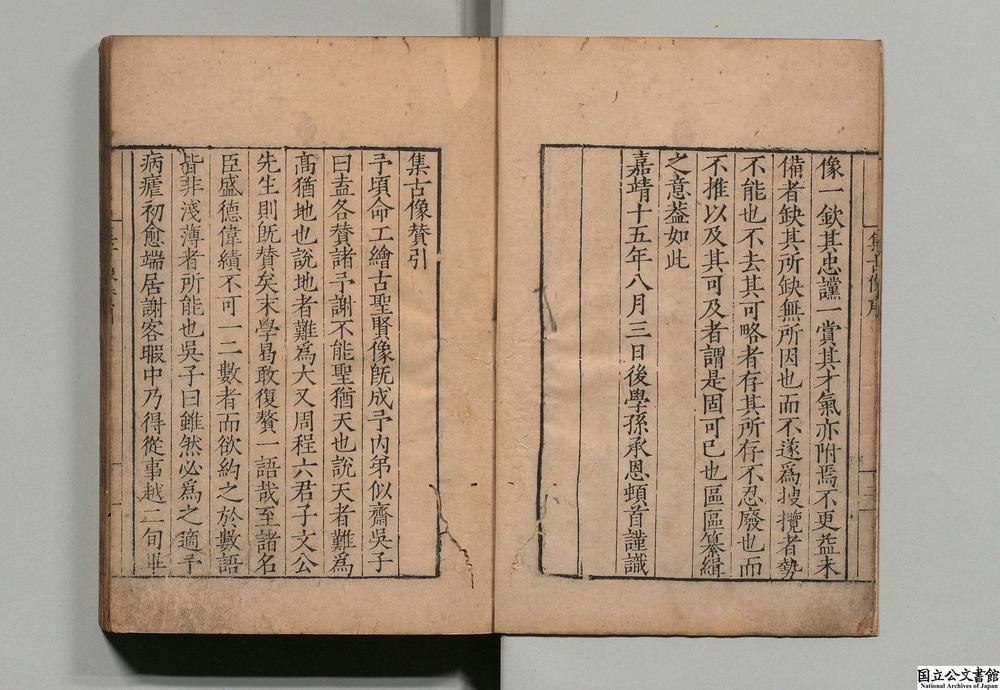 像一欽其忠讜一賞其才氣亦附焉不更益未
備者缺其所缺無所因也而不遂爲搜攬者勢
不能也不去其可略者存其所存不忍廢也而
不推以及其可及者謂是固可已也區區纂緝
之意葢如此
嘉靖十五年八月三日後學孫承恩頓首謹識
集古像贊引
予頃命工繪古聖賢像旣成予内弟似齋吳子
曰盍各贊諸予謝不能聖猶天也說天者難爲
高猶地也說地者難爲大又周程六君子文公
先生則旣贊矣末學曷敢復贅一語哉至諸名
臣盛德偉績不可一二數者而欲約之於數語
皆非淺薄者所能也吳子曰雖然必爲之適予
病瘧初愈端居謝客暇中乃得從事越二旬畢
集古像序
国立公文書館
National Archives of Japan